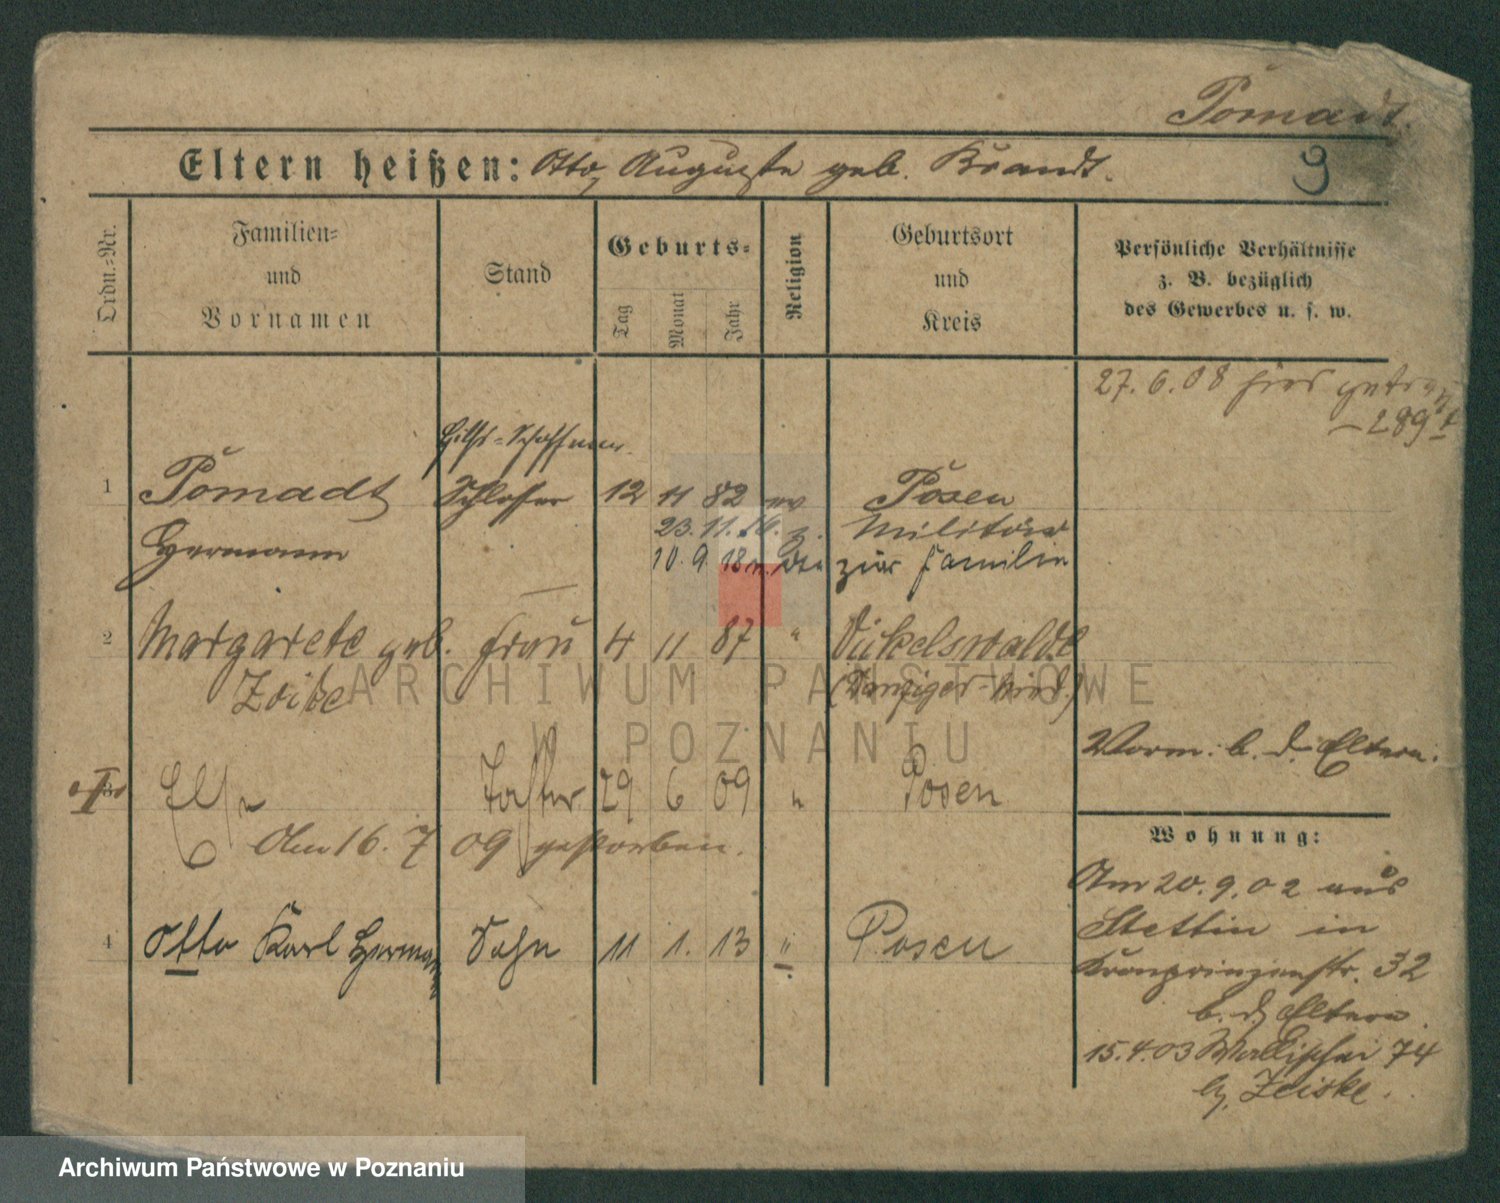 Pomadt.
9
Eltern heißen: Otto, Auguste geb. Brandt.
Ordn.-Nr.
Familien- und Vornamen
Stand
Geburts-
Tag Monat Jahr
Religion
Geburtsort und Kreis
Persönliche Verhältnisse z. B. bezüglich des Gewerbes u. s. w.
27.6.08 hier getr.
289
Hilfs-Schaffner.
1 Pomadt Schlosser 12 11 82 ev Posen
23.11.16. z. Militär
Hermann 10.9.18 zur Familie
2 Margarete geb. Frau 4 11 87 " Nickelswalde
(Danziger-Nied.)
Vorm. b. d. Eltern.
3 Else Tochter 29 6 09 " Posen
Am 16.7 09 gestorben.
Wohnung:
Am 20.9.02 aus
4 Otto Karl Hermann Sohn 11 1. 13 " Posen
Stettin in
Kronprinzenstr. 32
b. d. Eltern.
15.4.03 Wallischei 74
b. Zeiske.
ARCHIWUM PAŃSTWOWE
W POZNANIU
Archiwum Państwowe w Poznaniu